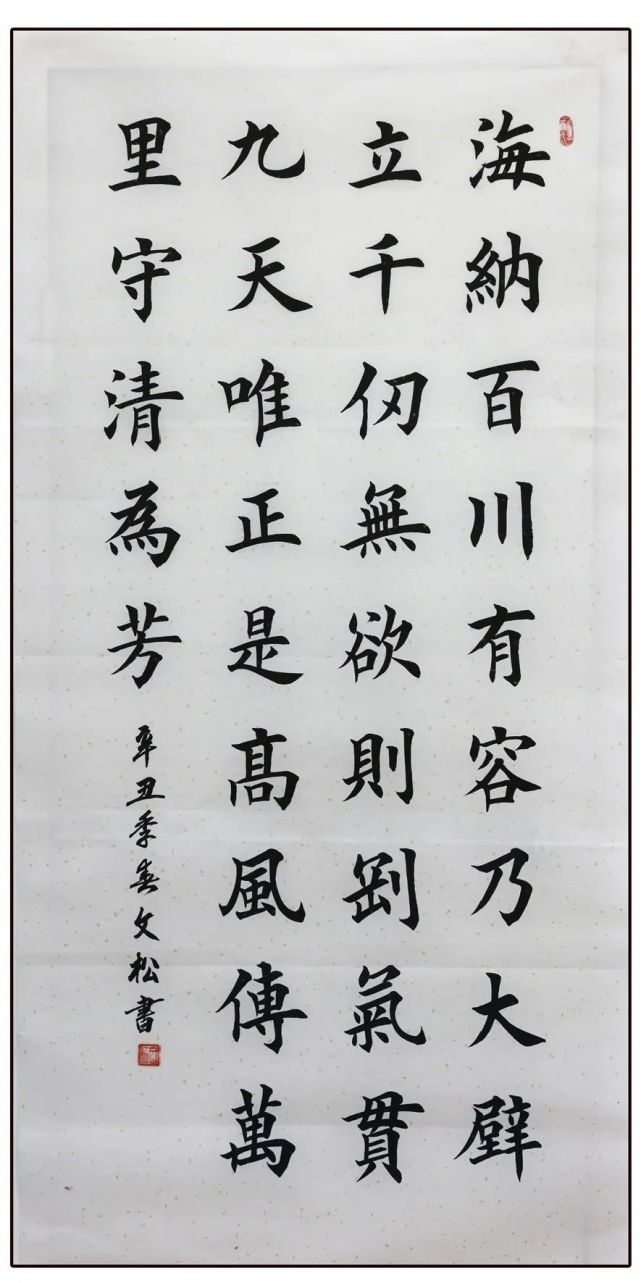 海納百川有容乃大壁
立千仞無欲則剛氣貫
九天唯正是高風傳萬
里守清為芳
辛丑季春文松書